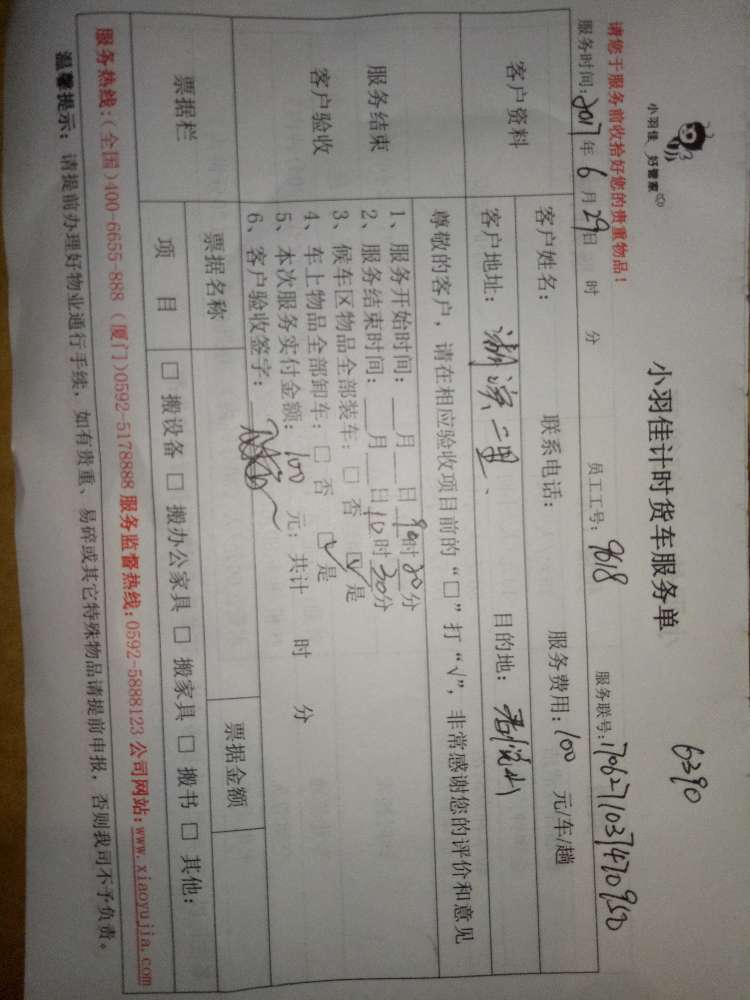 小羽佳 好管家
6390
小羽佳计时货车服务单
请您于服务前收拾好您的贵重物品！
服务时间：2017年6月29日 时 分 员工工号：9618 服务联号：17062711037470950
客户资料
客户姓名： 联系电话： 服务费用：100 元/车/趟
客户地址： 二里、 目的地：
服务结束
客户验收
尊敬的客户，请在相应验收项目前的“□”打“√”，非常感谢您的评价和意见
1、服务开始时间：__月__日 时30分
2、服务结束时间：__月__日10时30分
3、候车区物品全部装车：□ 否 ☑ 是
4、车上物品全部卸车：□ 否 ☑ 是
5、本次服务实付金额：100 元；共计 时 分
6、客户验收签字：
票据栏
票据名称 票据金额
项 目 □ 搬设备 □ 搬办公家具 □ 搬家具 □ 搬书 □ 其他：
服务热线：（全国）400-6655-888（厦门）0592-5178888 服务监督热线：0592-5888123 公司网站：www.xiaoyujia.com
温馨提示：请提前办理好物业通行手续，如有贵重、易碎或其它特殊物品请提前申报，否则我司不予负责。